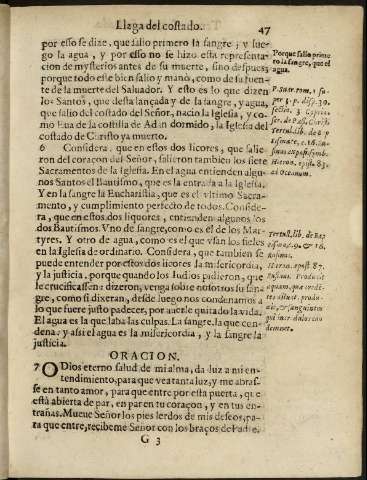 Llaga del costado. 47
por esso se dize, que salio primero la sangre; y lue-
go la agua, y por esso no se hizo esta representa-
cion de mysterios antes de su muerte, sino despues,
porque todo este bien salio y manò, como de su fuen-
te de la muerte del Saluador. Y esto es lo que dizen
los Santos, que desta lançada y de la sangre, y agua,
que salio del costado del Señor, nacio la Iglesia, y co-
mo Eua de la costilla de Adan dormido, la Iglesia del
costado de Christo ya muerto.
6 Considera que en estos dos licores, que salie-
ron del coraçon del Señor, salieron tambien los siete
Sacramentos de la Iglesia. En el agua entienden algu-
nos Santos el Bautismo, que es la entrada a la Iglesia.
Y en la sangre la Eucharistia, que es el vltimo Sacra-
mento, y cumplimiento perfecto de todos. Conside-
ra, que en estos dos liquores, entienden algunos los
dos Bautismos. Vno de sangre, como es el de los Mar-
tyres. Y otro de agua, como es el que vsan los fieles
en la Iglesia de ordinario. Considera, que tambien se
puede entender por estos dos licores la misericordia,
y la justicia, porque quando los Iudios pidieron, que
le crucificassen: dizeron, venga sobre nosotros su san-
gre, como si dixeran, desde luego nos condenamos a
lo que fuere justo padecer, por auerle quitado la vida.
El agua es la que laba las culpas. La sangre la que con-
dena: y assi el agua es la misericordia, y la sangre la
justicia.
ORACION.
7 O Dios eterno salud de mi alma, da luz a mi en-
tendimiento, para que vea tanta luz, y me abras-
se en tanto amor, para que entre por esta puerta, que
està abierta de par, en par en tu coraçon, y en tus en-
trañas. Mueue Señor los pies lerdos de mis deseos, pa-
ra que entre, recibeme Señor con los braços de Padre.
G 3
Porque salio prime
ro la sangre, que el
agua.
P. Suar. tom. 2 su
per 3. p. disp. 39.
sectio. 3 Cypria.
ser. de Pass. Christi
Tertul. lib. de
Hieron. epist. 83.
ad Oceanum.
Tertul. lib. de Bap
tismo, c. 9. 16.
Hieron. epist. 87.